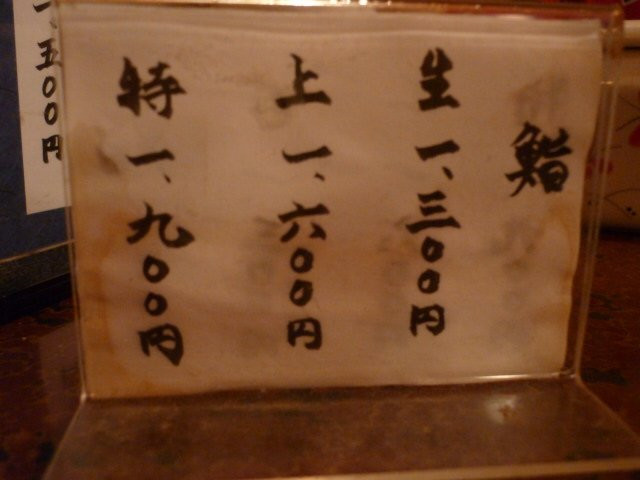 鮨
生 一、三〇〇円
上 一、六〇〇円
特 一、九〇〇円
一、五〇〇円